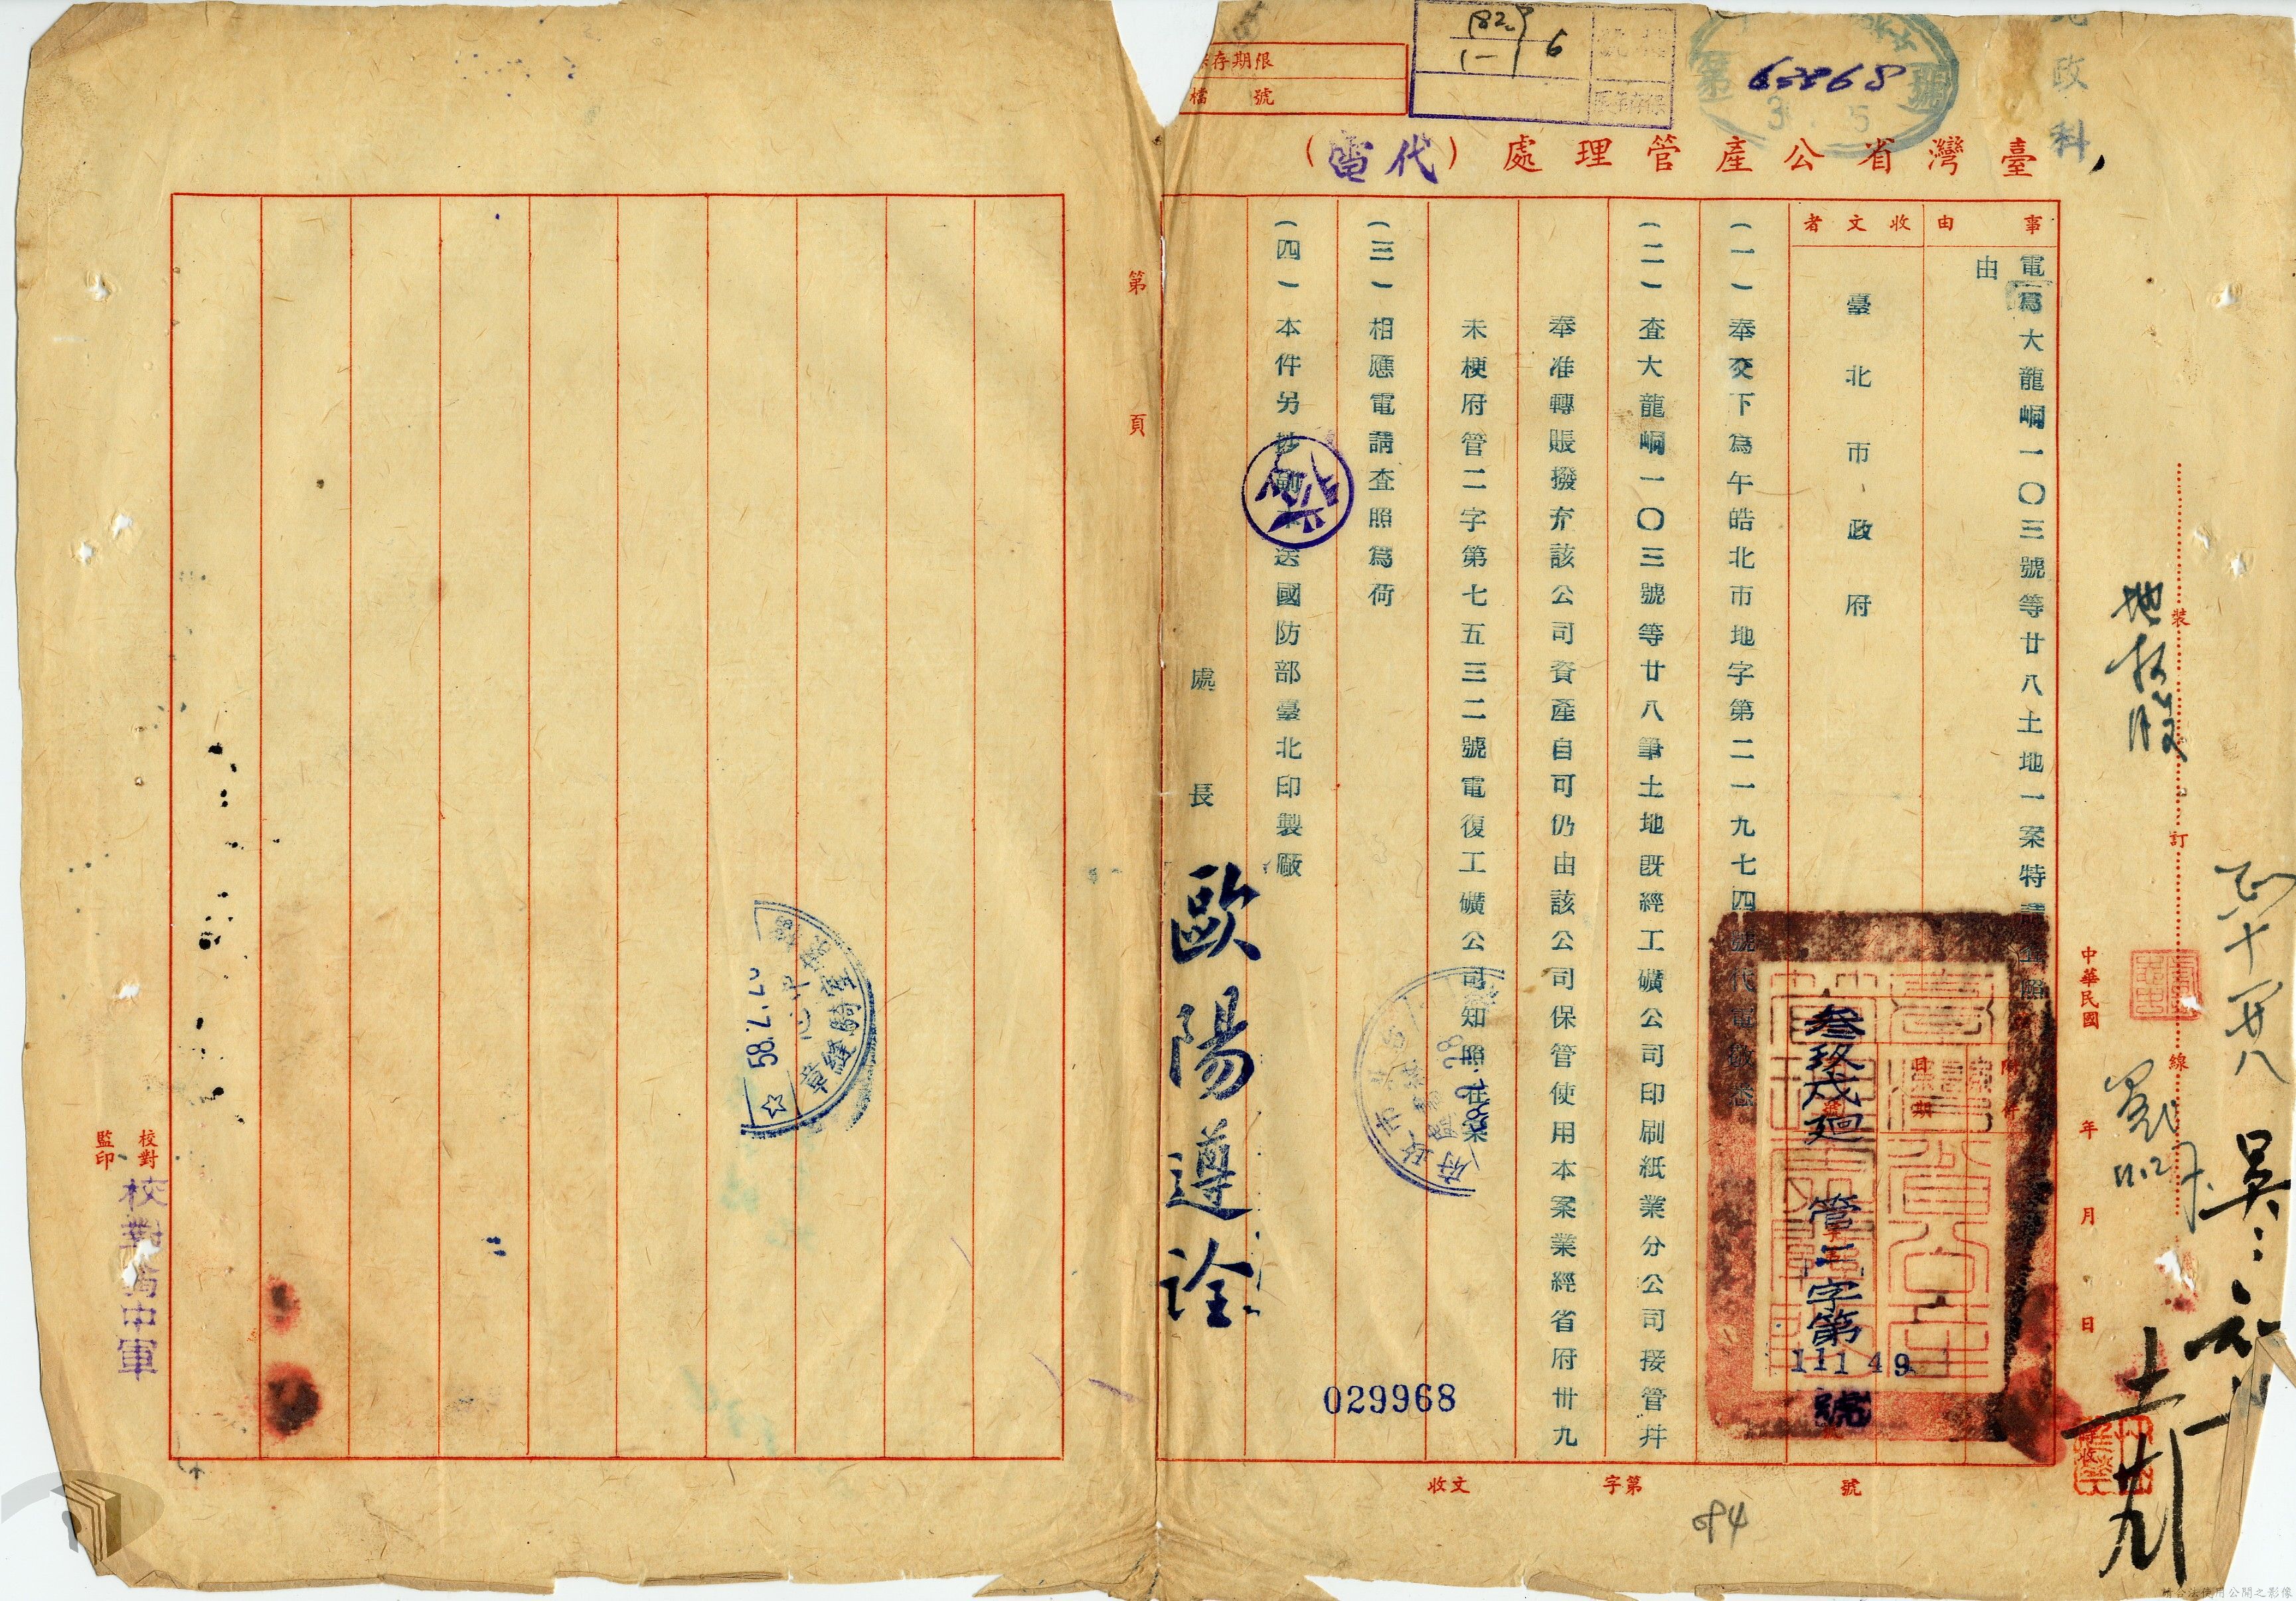 保存期限
檔號
182
(一) 6
62868
第 號
3 5
政科
臺灣省公產管理處（代電）
事由
電為大龍峒一〇三號等廿八土地一案特請查照
由
收文者
臺北市政府
附件
日期
叁玖戌迴
管二字第
11149
號
（一）奉交下為午皓北市地字第二一九七四號代電敬悉
（二）查大龍峒一〇三號等廿八筆土地既經工礦公司印刷紙業分公司接管幷
奉准轉賬撥充該公司資產自可仍由該公司保管使用本案業經省府卅九
未梗府管二字第七五三二號電復工礦公司知照在案
（三）相應電請查照為荷
（四）本件另抄副本送國防部臺北印製廠
處長 歐陽遵詮
029968
收文 字第 號
84
裝
訂
線
中華民國 年 月 日
地權股
11.27
十一廿八
十一
廿九
第 頁
騎縫章
58.7.
校對
監印
校對 中軍